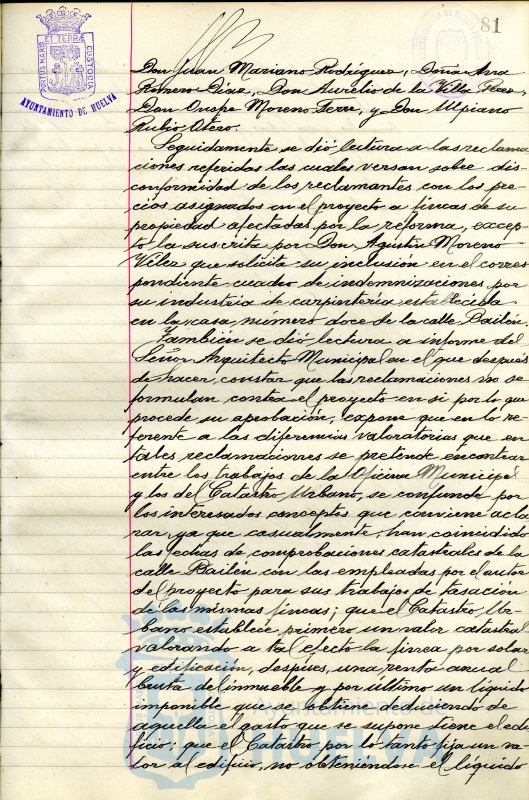 81
PORTUS MARIS ET TERRE CUSTODIA
AYUNTAMIENTO DE HUELVA
Don Juan Mariano Rodríguez, Doña Ana
Romero Díaz, Don Aurelio de la Villa
Don Onofre Moreno y Don Ulpiano
Rubio Otero.
Seguidamente se dió lectura a las reclama
ciones referidas las cuales versan sobre dis-
conformidad de los reclamantes con los pre-
cios asignados en el proyecto a fincas de su
propiedad afectadas por la reforma, excep-
to la suscrita por Don Agustín Moreno
Vélez que solicita su inclusión en el corres
pondiente cuadro de indemnizaciones por
su industria de carpintería establecida
en la casa número doce de la calle Bailén.
También se dió lectura a informe del
Señor Arquitecto Municipal en el que después
de hacer constar que las reclamaciones no se
formulan contra el proyecto en si por lo que
procede su aprobación, expone que en lo re-
ferente a las diferencias valoratorias que en
tales reclamaciones se pretende encontrar
entre los trabajos de la Oficina Municipal
y los del Catastro Urbano, se confunde por
los interesados conceptos que conviene acla
rar ya que casualmente, han coincidido
las fechas de comprobaciones catastrales de la
calle Bailén con las empleadas por el autor
del proyecto para sus trabajos de tasación
de las mismas fincas; que el Catastro Ur-
bano establece primero un valor catastral
valorando a tal efecto la finca por solar
y edificación, después, una renta anual
bruta del inmueble y por último un líquido
imponible que se obtiene deduciendo de
aquella el gasto que se supone tiene el edi
ficio; que el Catastro por lo tanto fija un va-
lor al edificio, no obteniendose el líquido
Ayuntamiento de
HUELVA